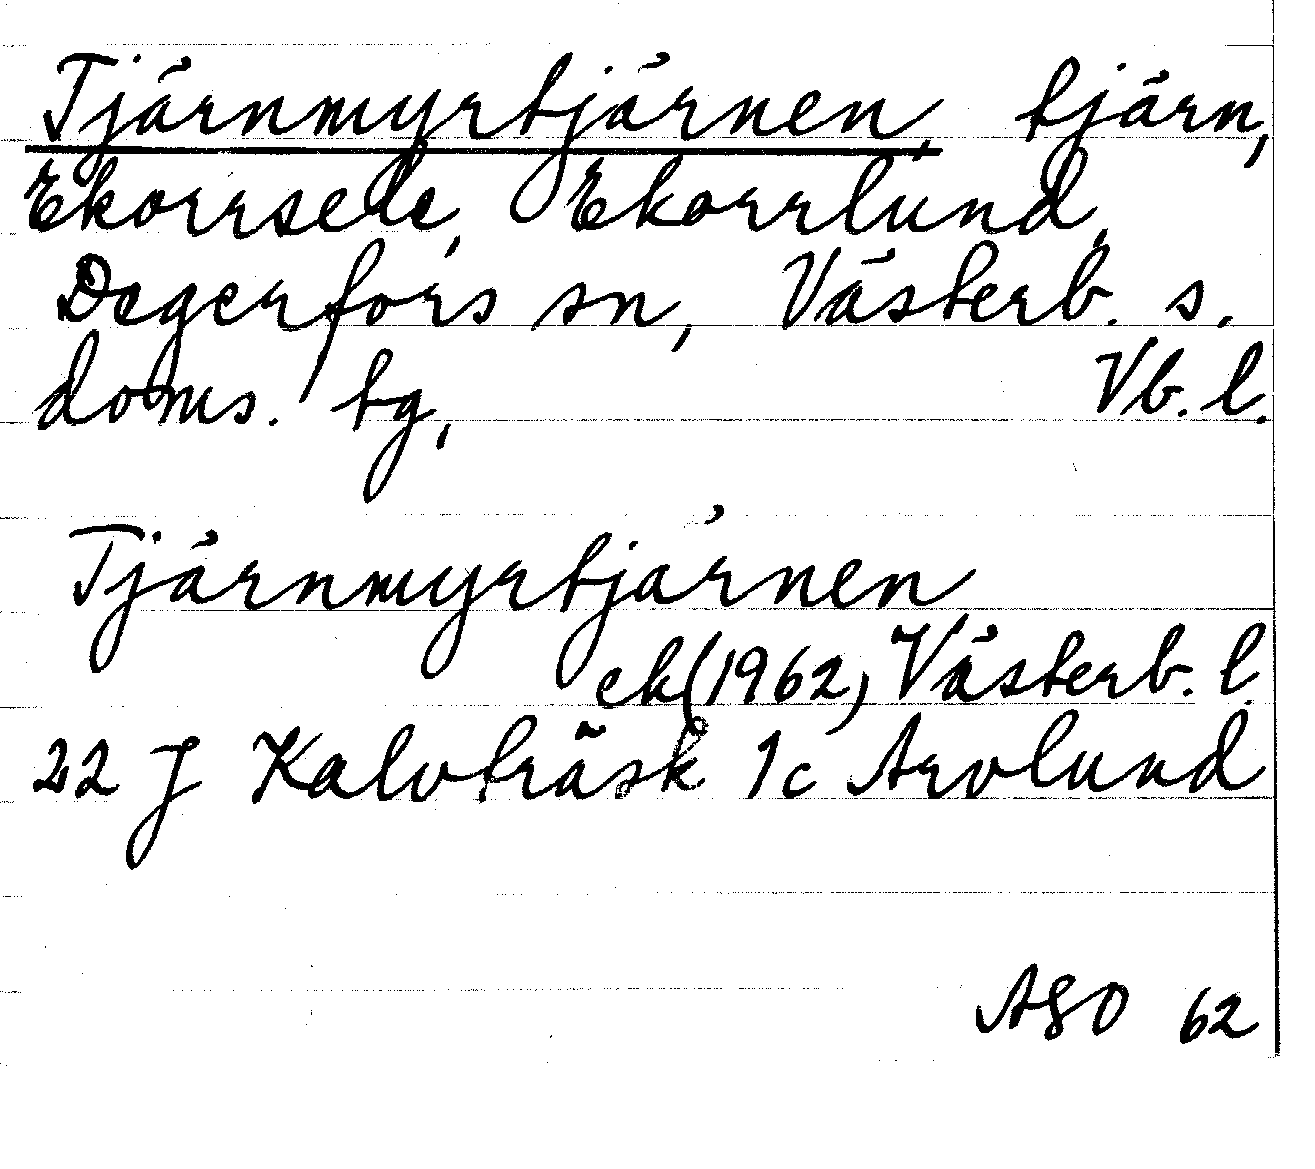 Tjärnmyrtjärnen, tjärn,
Ekorrsele, Ekorrlund,
Degerfors sn, Västerb. s.
doms. tg,
Vb. l.
Tjärnmyrtjärnen
ek (1962) Västerb. l.
22 J Kalvträsk 1c Arvlund
ASO 62